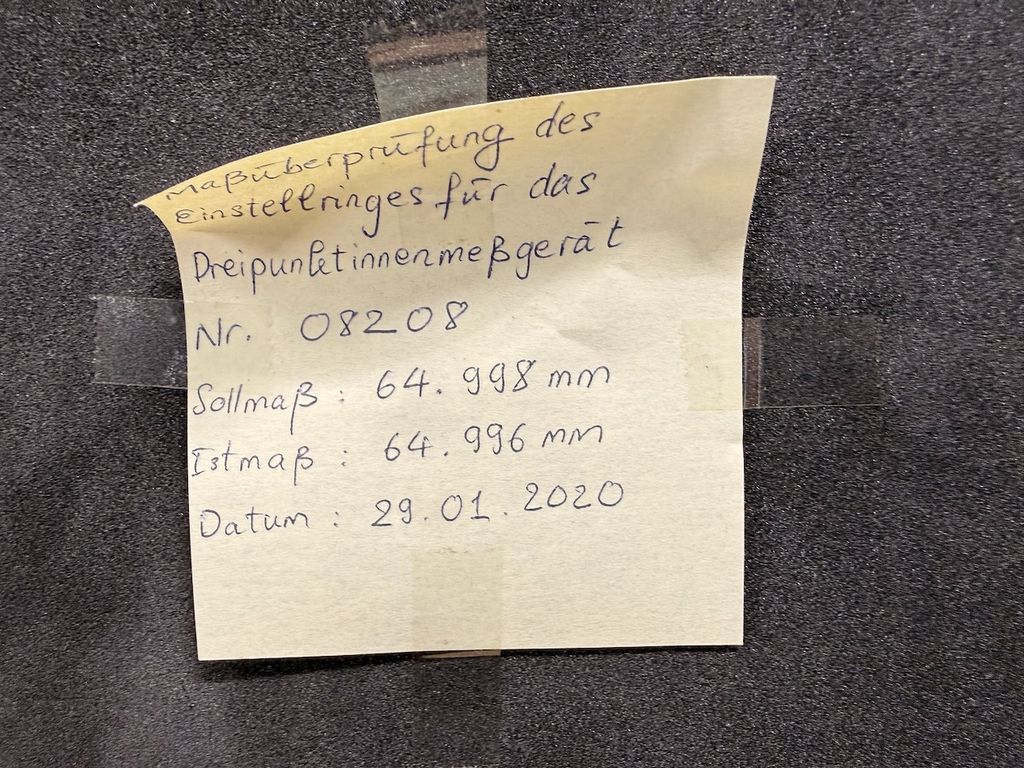 Maßüberprüfung des
Einstellringes für das
Dreipunktinnenmeßgerät
Nr. 08208
Sollmaß : 64.998 mm
Istmaß : 64.996 mm
Datum : 29.01.2020